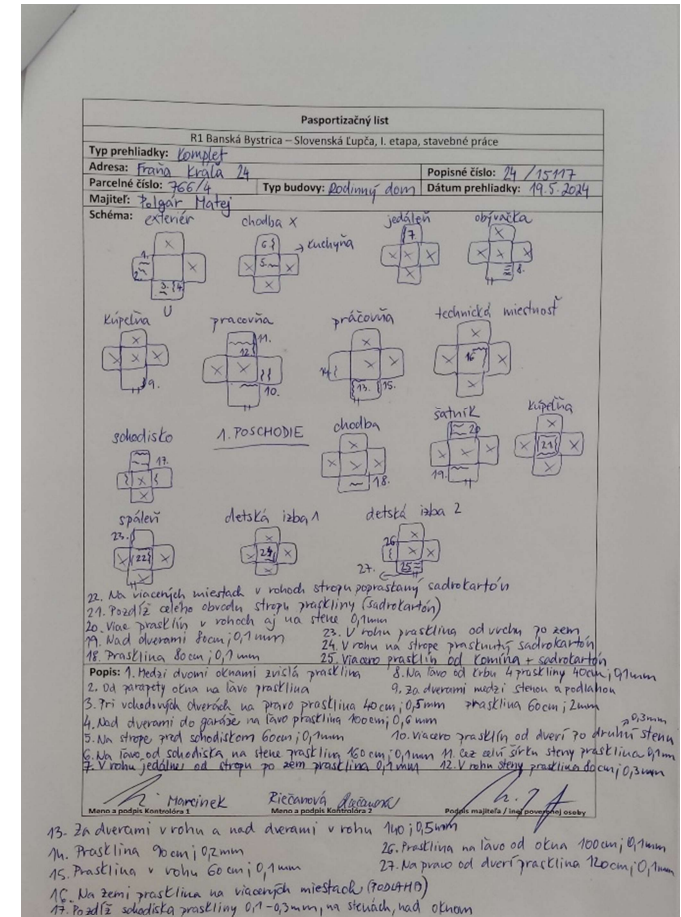 Pasportizačný list
R1 Banská Bystrica – Slovenská Ľupča, I. etapa, stavebné práce
Typ prehliadky: Komplet
Adresa: Fraňa Kráľa 24 Popisné číslo: 24 / 15117
Parcelné číslo: 766/4 Typ budovy: Rodinný dom Dátum prehliadky: 19.5.2024
Majiteľ: Polgár Matej
Schéma: exteriér chodba X jedáleň obývačka
kuchyňa
1. 2. 3. 4. 5. 6. 7. 8.
kúpeľňa pracovňa práčovňa technická miestnosť
9. 10. 11. 12. 13. 14. 15. 16.
schodisko 1. POSCHODIE chodba šatník kúpeľňa
17. 18. 19. 20 21.
spáleň detská izba 1 detská izba 2
22. 23. 24. 25. 26. 27.
22. Na viacených miestach v rohoch stropu popraskaný sadrokartón
21. Pozdĺž celeho obvodu stropu praskliny (sadrokartón)
20. Viac prasklín v rohoch aj na stene 0,1mm
19. Nad dverami 80cm; 0,1mm 23. V rohu prasklina od vrchu po zem
24. V rohu na strope prasknutý sadrokartón
18. Prasklina 80cm; 0,1mm 25. Viacero prasklín od komína + sadrokartón
Popis: 1. Medzi dvomi oknami zvislá prasklina 8. Na ľavo od krbu 4 praskliny 40cm; 0,1mm
2. Od parapety okna na ľavo prasklina 9. Za dverami medzi stenou a podlahou
3. Pri vchodových dverách na pravo prasklina 40cm; 0,5mm prasklina 60cm; 2mm
4. Nad dverami do garáže na ľavo prasklina 100cm; 0,6mm 0,3mm
5. Na strope pred schodiskom 60cm; 0,1mm 10. Viacero prasklín od dverí po druhú stenu
6. Na ľavo od schodiska na stene prasklina 160cm; 0,1mm 11. Cez celú šírku steny prasklina 0,1mm
7. V rohu jedálne od stropu po zem prasklina 0,1mm 12. V rohu steny prasklina 80cm; 0,3mm
Marcinek Riečanová
Meno a podpis Kontrolóra 1 Meno a podpis Kontrolóra 2 Podpis majiteľa / inej poverenej osoby
13. Za dverami v rohu a nad dverami v rohu 140; 0,5mm
14. Prasklina 90cm; 0,2mm 26. Prasklina na ľavo od okna 100cm; 0,1mm
15. Prasklina v rohu 60cm; 0,1mm 27. Na pravo od dverí prasklina 120cm; 0,1mm
16. Na zemi prasklina na viacených miestach (PODLAHA)
17. Pozdĺž schodiska praskliny 0,1-0,3mm, na stenách, nad oknom